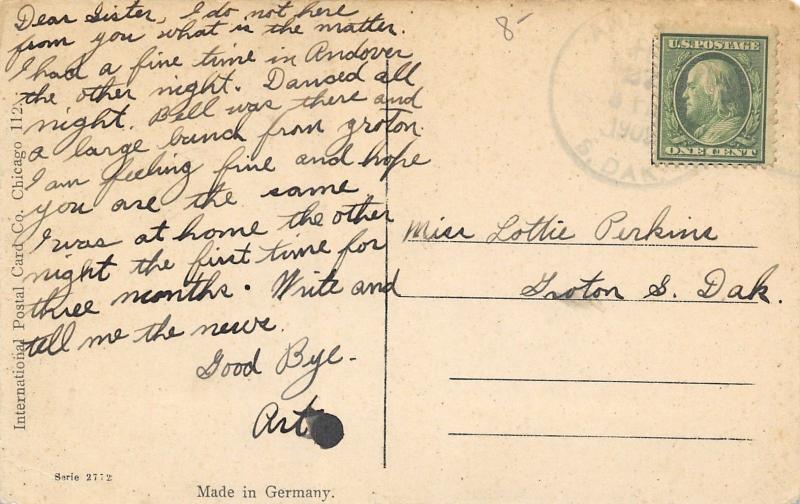 Dear Sister, I do not here
from you what is the matter.
I had a fine time in Andover
the other night. Danced all
night. Bell was there and
a large bunch from Groton.
I am feeling fine and hope
you are the same
I was at home the other
night the first time for
three months. Write and
tell me the news.
Good Bye.
Art
8-
U.S. POSTAGE
ONE CENT
S. DAK
Miss Lottie Perkins
Groton S. Dak.
International Postal Card Co. Chicago 112
Serie 2772
Made in Germany.